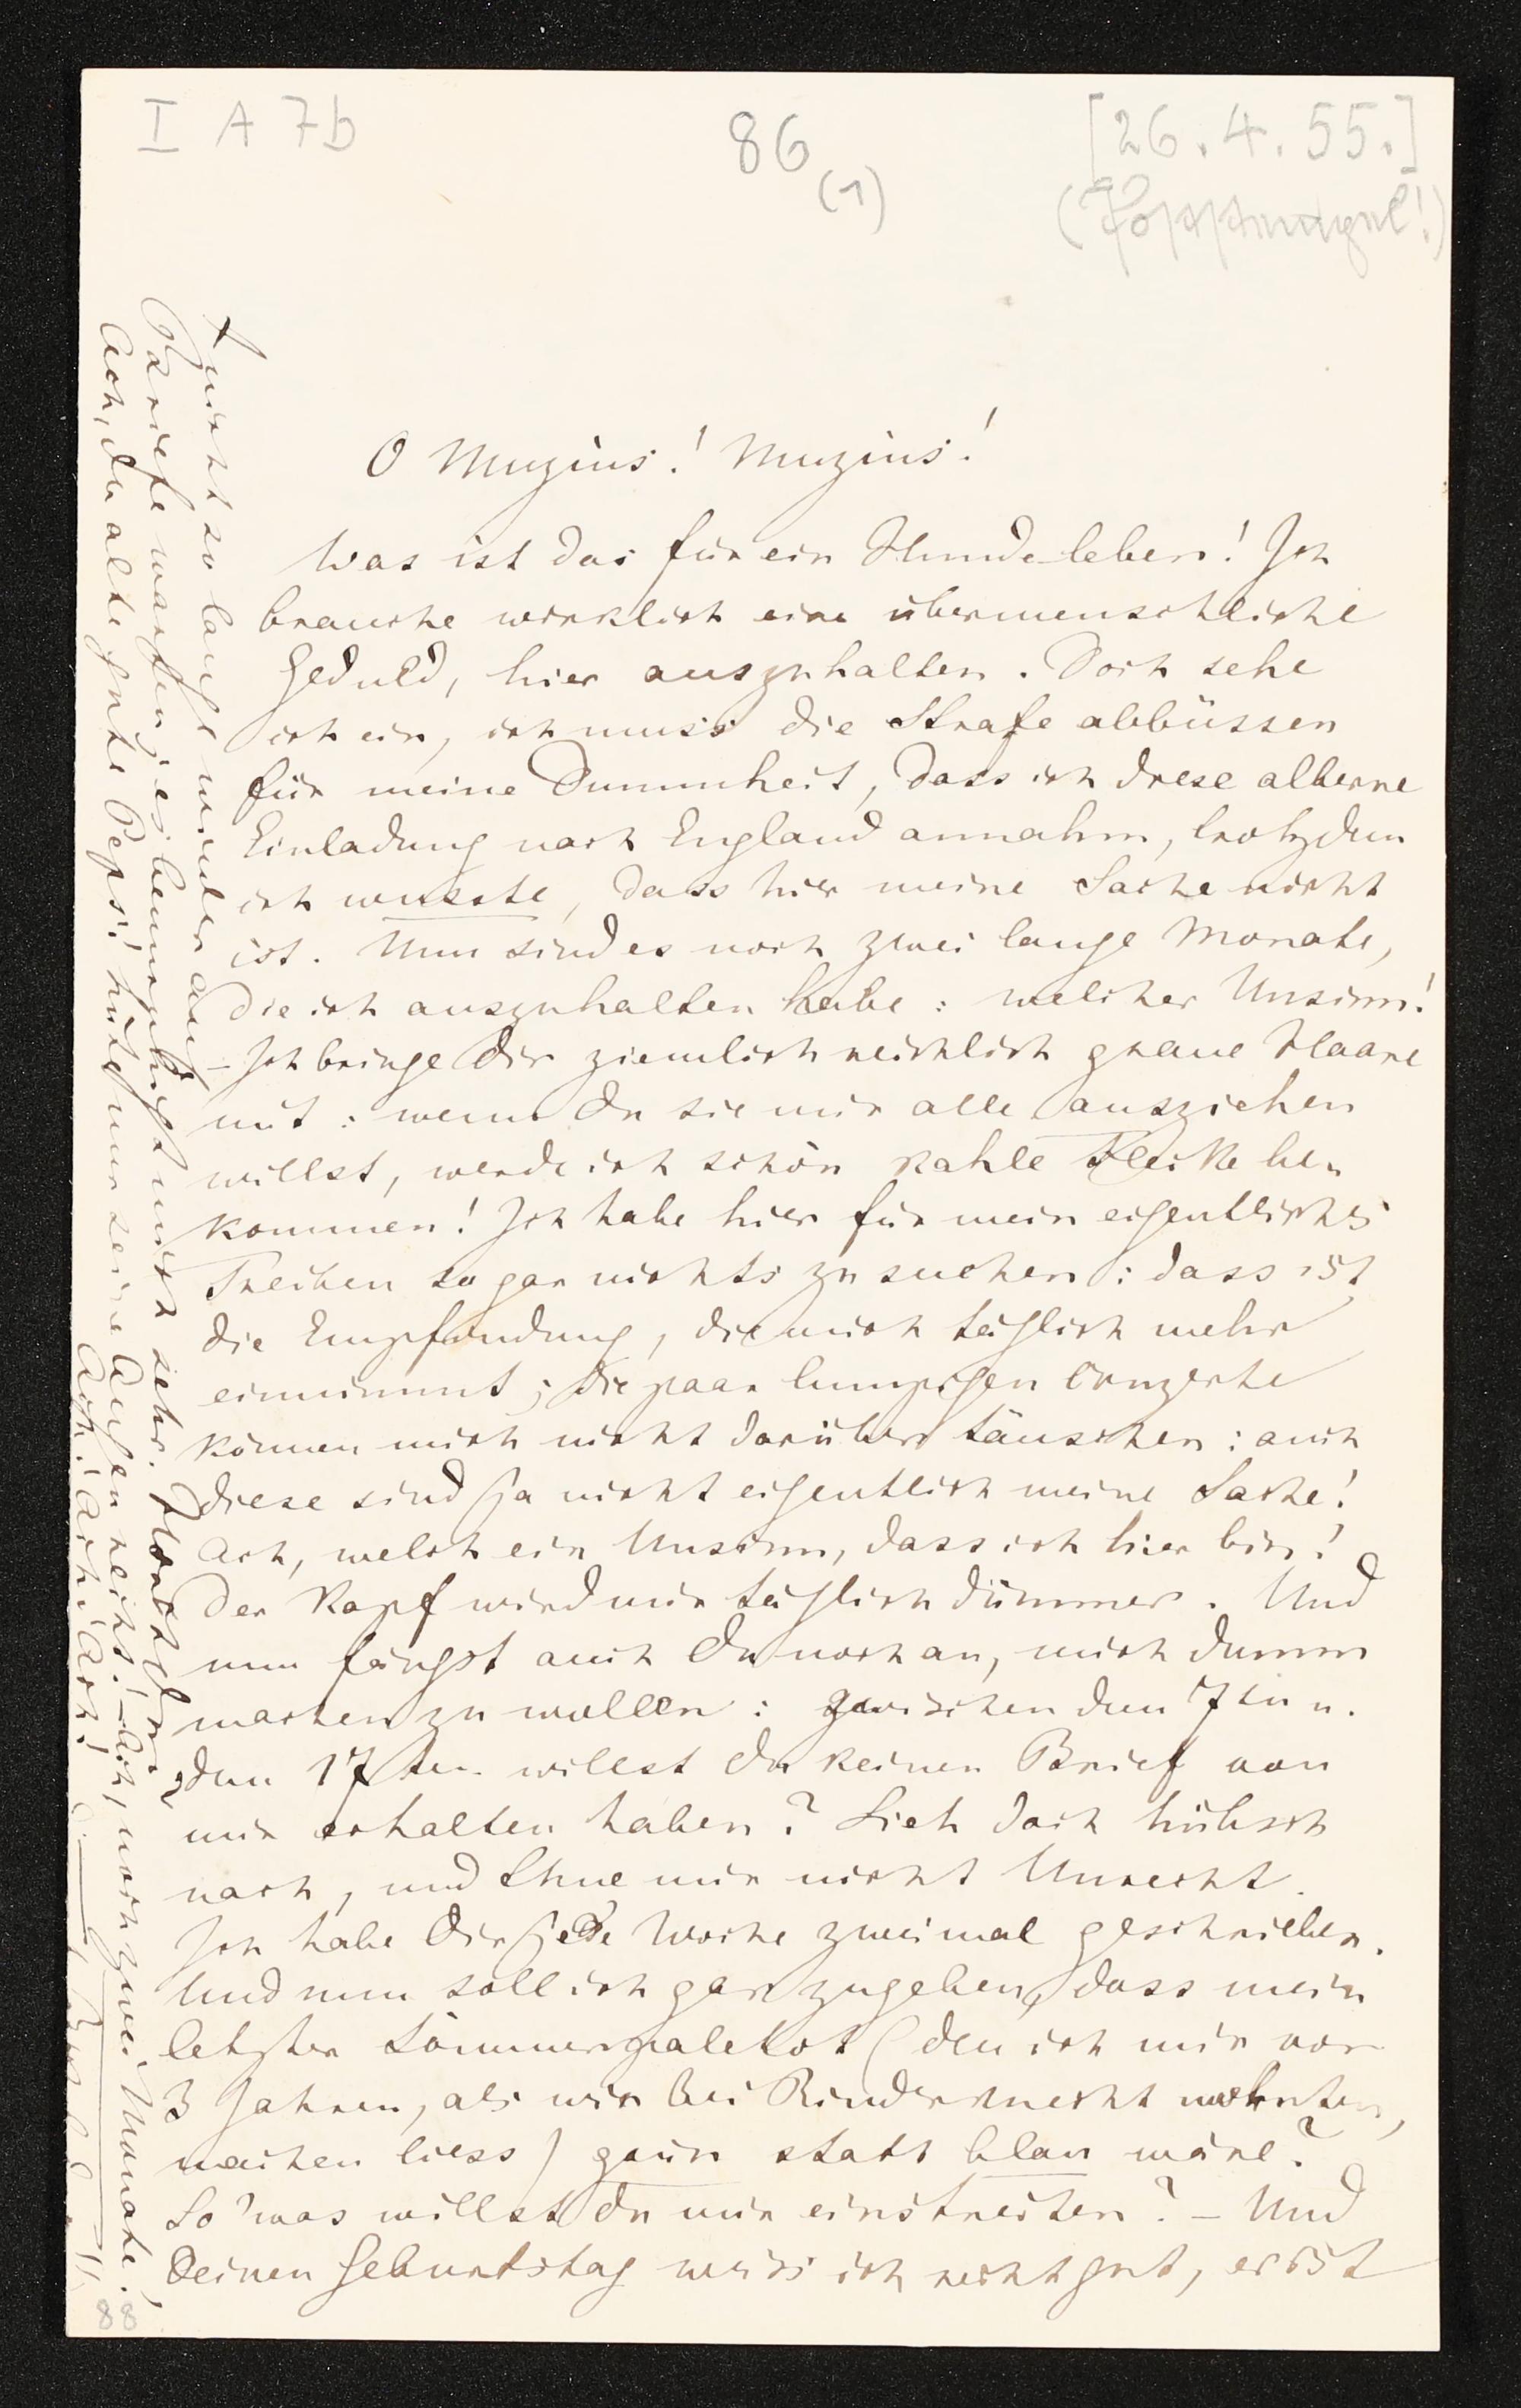 I A 7b
86
(1)
[26.4.55.]
O Muzius! Muzius!
Was ist das für ein Hundeleben! Ich
brauche wirklich eine übermenschliche
Geduld, hier auszuhalten. Doch sehe
ich ein, ich muss die Strafe abbüssen
für meine Dummheit, dass ich diese alberne
Einladung nach England annahm, trotzdem
ich wusste, dass hier meine Sache nicht
ist. Nun sind es noch zwei lange Monate,
die ich auszuhalten habe: welcher Unsinn!
– Ich bringe Dir ziemlich reichlich graue Haare
mit: wenn Du sie mir alle ausziehen
willst, werde ich schön kahle Flecke be-
kommen! Ich habe hier für mein eigentliches
Treiben so gar nichts zu suchen: dass ist
die Empfindung, die mich täglich mehr
einnimmt; die paar lumpigen Conzerte
können mich nicht darüber täuschen: auch
diese sind ja nicht eigentlich meine Sache!
Ach, welch ein Unsinn, dass ich hier bin!
Der Kopf wird mir täglich dümmer. Und
nun fängst auch Du noch an, mich dumm
machen zu wollen: zwischen dem 7ten u.
dem 17ten willst Du keinen Brief von
mir erhalten haben? Sieh doch hübsch
nach, und thue mir nicht Unrecht.
Ich habe Dir jede Woche zweimal geschrieben.
Und nun soll ich gar zugeben, dass mein
letzter Sommerpaletot (den ich mir vor
3 Jahren, als wir bei Rinderknecht wohnten,
machen liess) grün statt blau wäre?
So 'was willst Du mir einstreiten? – Und
Deinen Geburtstag weiss ich recht gut, er ist
nicht so lange wieder auf
Briefe warten; es beunruhigt mich sehr.
Ach, der alte gute Peps! hüte nur seine Augen recht! – Ach, noch zwei Monate!,
Ach! Ach! Ach!
88